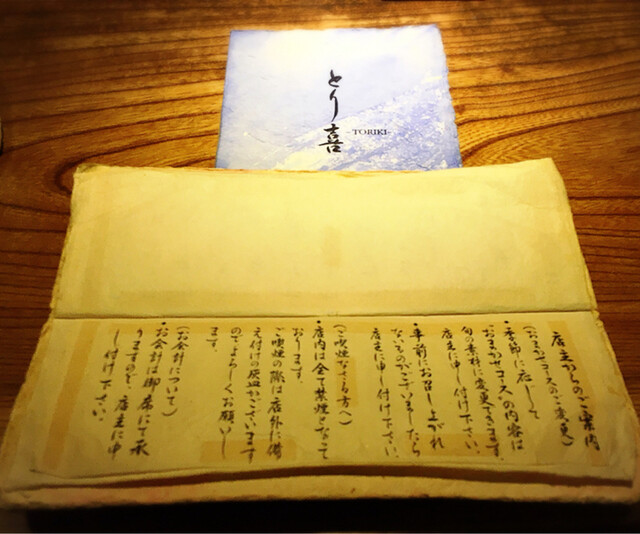 とり喜
-TORIKI-
店主からのご案内
(おまかせコースのご変更)
・季節に応じて
おまかせコースの内容は
旬の素材に変更できます。
店主に申し付け下さい。
・事前にお召し上がれ
ないものがございましたら
店主に申し付け下さい。
(ご喫煙なさる方へ)
・店内は全て禁煙となって
おります。
ご喫煙の際は店外に備
え付けの灰皿がございます
のでよろしくお願いし
ます。
(お会計について)
・お会計は御席にて承
りますので、店主に申
し付け下さい。